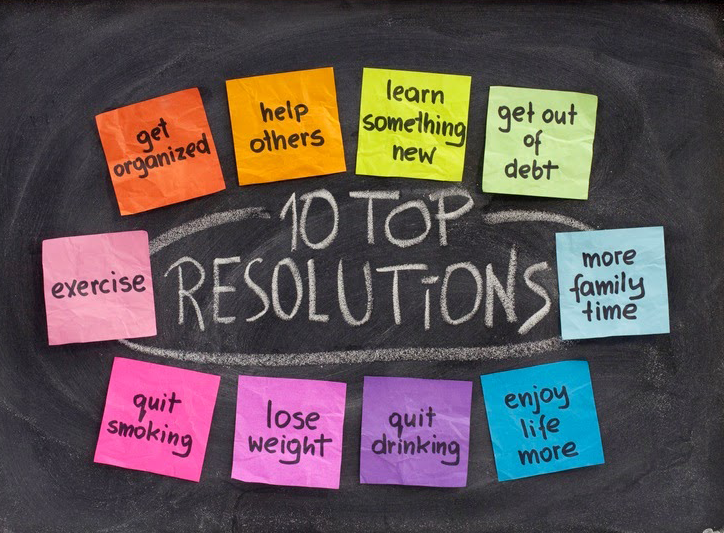 get
organized
help
others
learn
something
new
get out
of
debt
10 TOP
RESOLUTIONS
exercise
more
family
time
quit
smoking
lose
weight
quit
drinking
enjoy
life
more